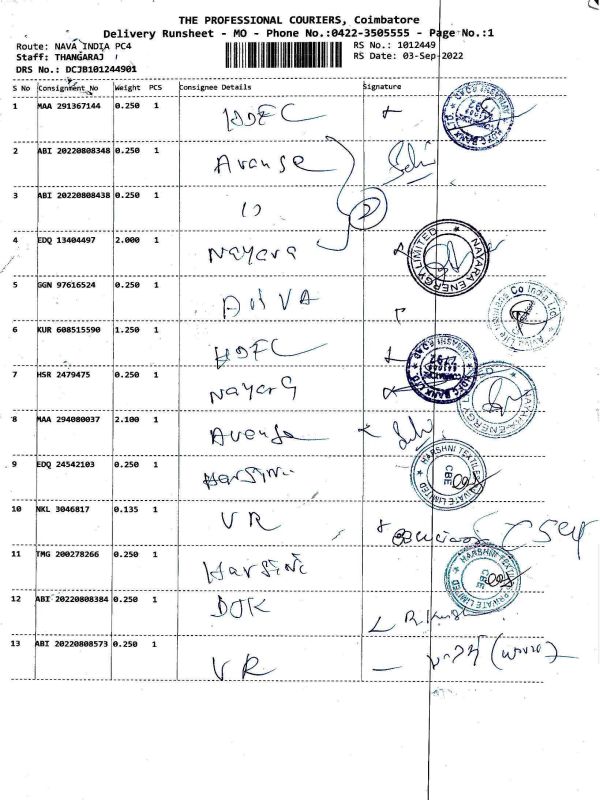 THE PROFESSIONAL COURIERS, Coimbatore
Delivery Runsheet - MO - Phone No.:0422-3505555 - Page No.:1
Route: NAVA INDIA PC4 RS No.: 1012449
Staff: THANGARAJ RS Date: 03-Sep-2022
DRS No.: DCJB101244901
S No Consignment_No Weight PCS Consignee Details Signature
1 MAA 291367144 0.250 1 HDFC
2 ABI 20220808348 0.250 1 Avanse
3 ABI 20220808438 0.250 1
4 EDQ 13404497 2.000 1 Nayara NAYARA ENERGY LIMITED
5 GGN 97616524 0.250 1
6 KUR 608515590 1.250 1 HDFC
7 HSR 2479475 0.250 1 Nayara HDFC BANK LTD. NAYARA ENERGY
8 MAA 294080037 2.100 1 Avanse
9 EDQ 24542103 0.250 1 Harsini HARSHNI TEXTILES PRIVATE LIMITED CBE
10 NKL 3046817 0.135 1 VR
11 TMG 200278266 0.250 1 Harsini HARSHNI TEXTILES PRIVATE LIMITED CBE
12 ABI 20220808384 0.250 1
13 ABI 20220808573 0.250 1 VR